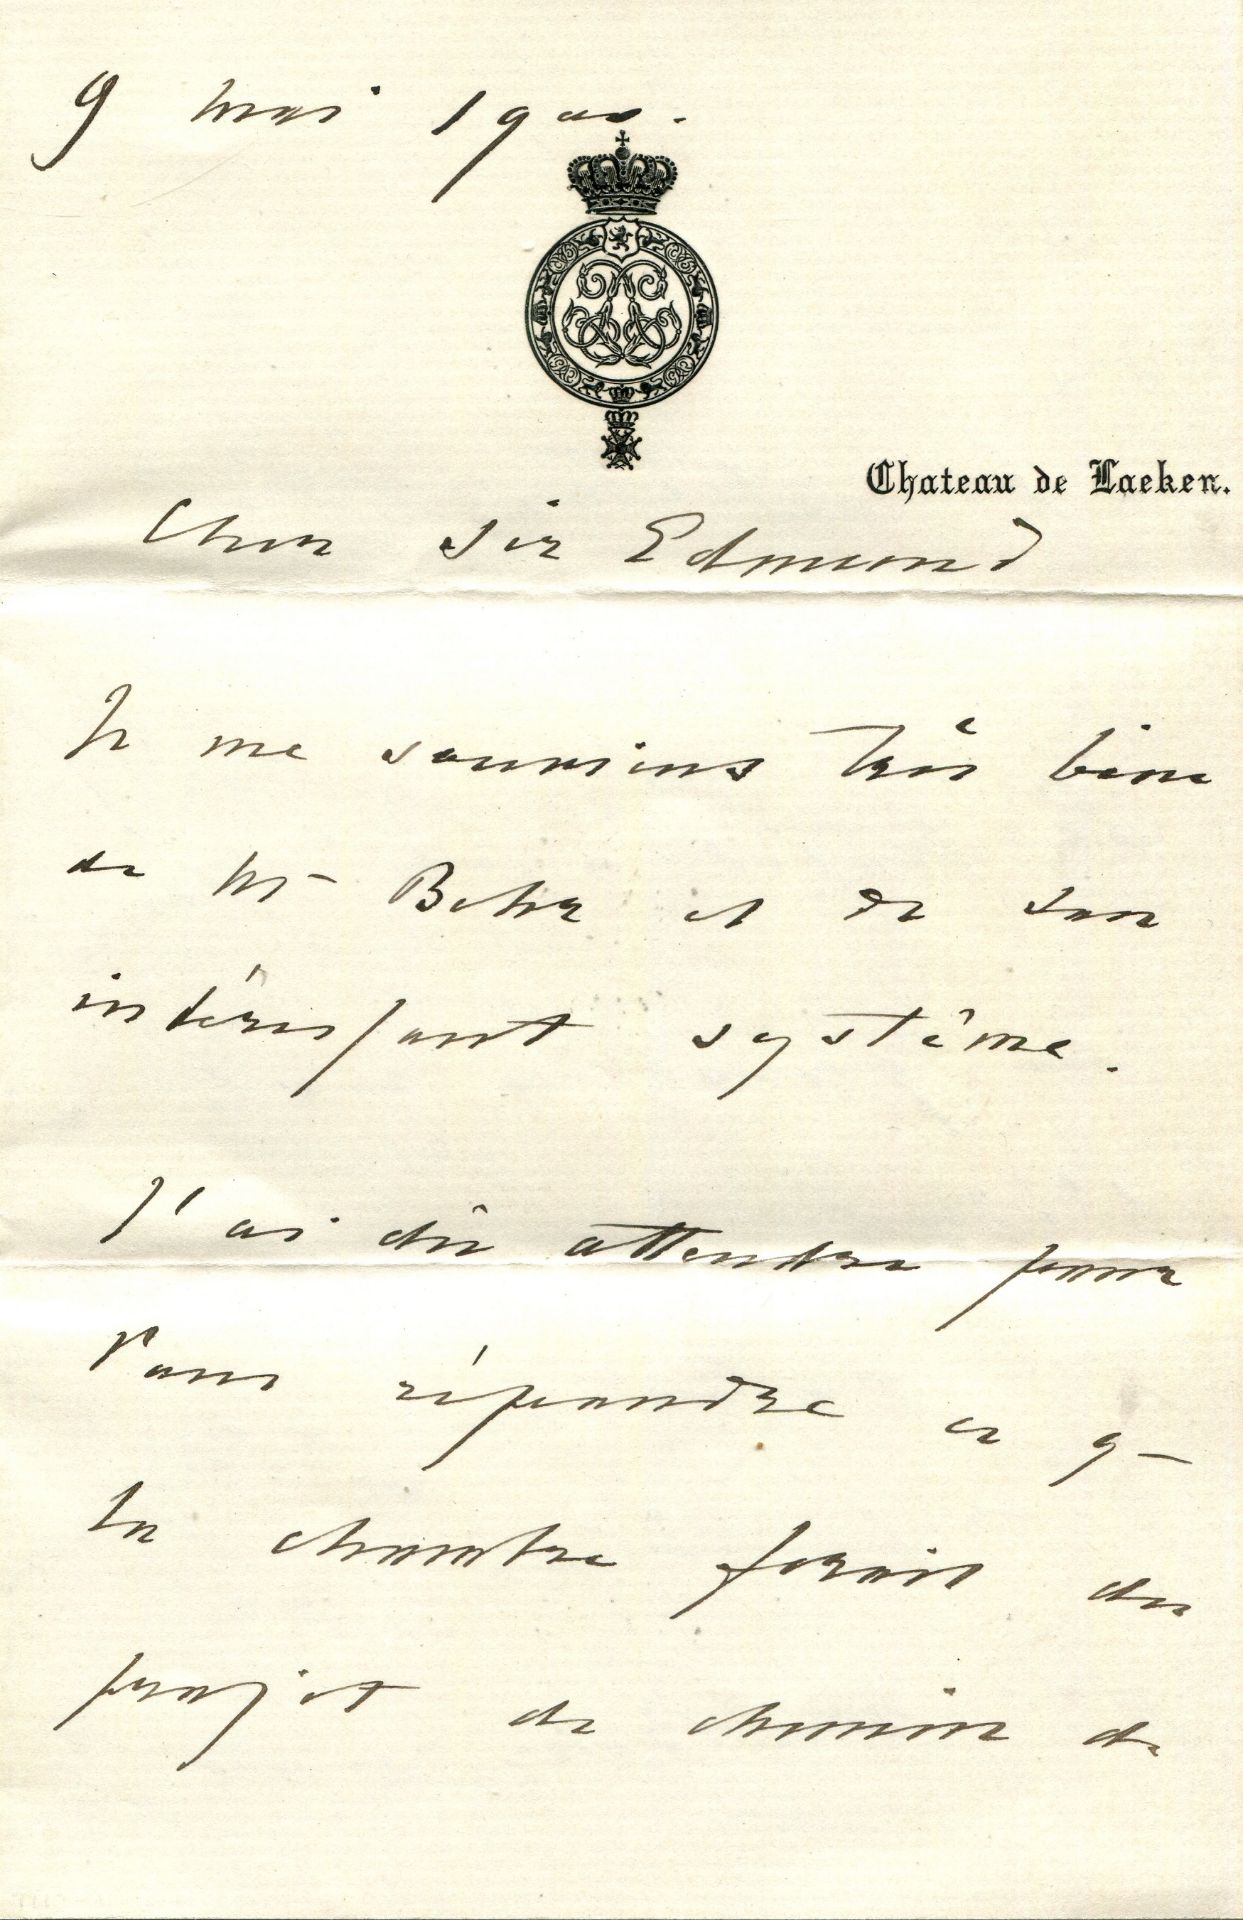 9 mai 1900.
Chateau de Laeken.
Cher Sir Edmund
Je me souviens très bien
de Mr Behr et de son
intéressant système.
J'ai dû attendre pour
Vous répondre ce q
la chambre ferait du
projet de chemin de